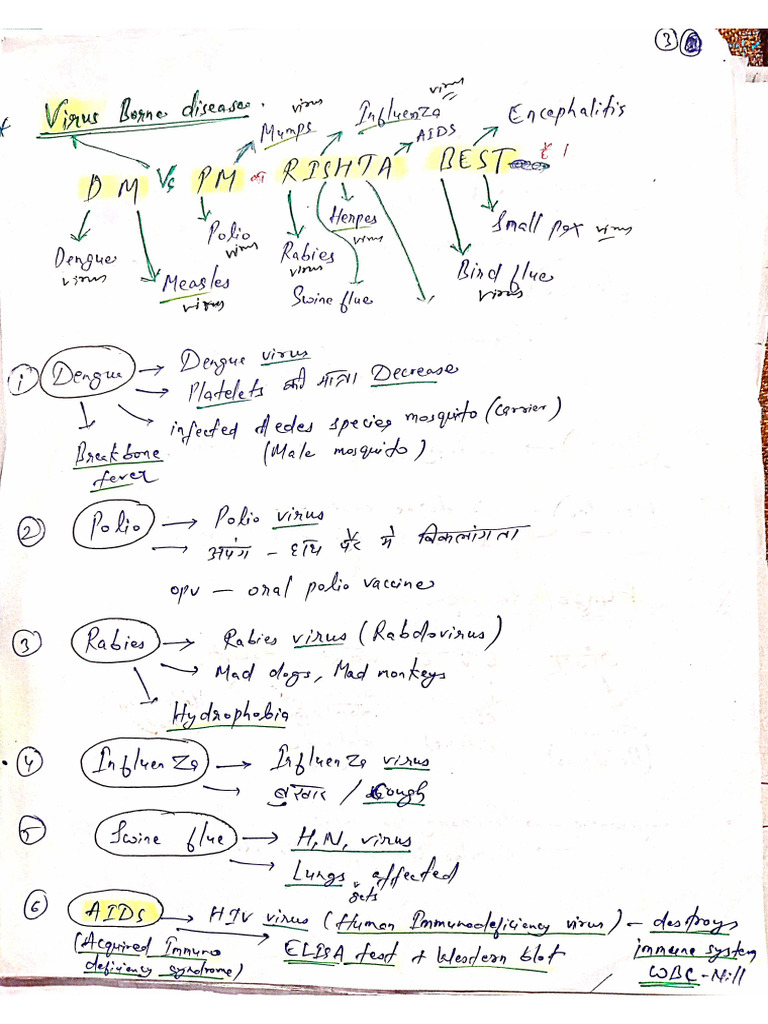 3
Virus Borne disease.
Mumps virus
Influenza virus
AIDS
Encephalitis
DM Vs PM का RISHTA BEST
Dengue virus
Measles virus
Polio virus
Rabies virus
Herpes virus
Swine flue
Bird flue virus
Small pox virus
1 Dengue → Dengue virus
→ Platelets की मात्रा Decrease
infected Aedes species mosquito (carrier)
(Male mosquito)
Breakbone
fever
2 Polio → Polio virus
→ अपंग - हाथ पैर में विकलांगता
OPV - oral polio vaccine
3 Rabies → Rabies virus (Rabdovirus)
→ Mad dogs, Mad monkeys
Hydrophobia
4 Influenza → Influenza virus
→ बुखार / Cough
5 Swine flue → H,N, virus
→ Lungs gets affected
6 AIDS → HIV virus (Human Immunodeficiency virus) - destroys
immune system
WBC - Nill
(Acquired Immuno
deficiency syndrome)
ELISA test + Western blot